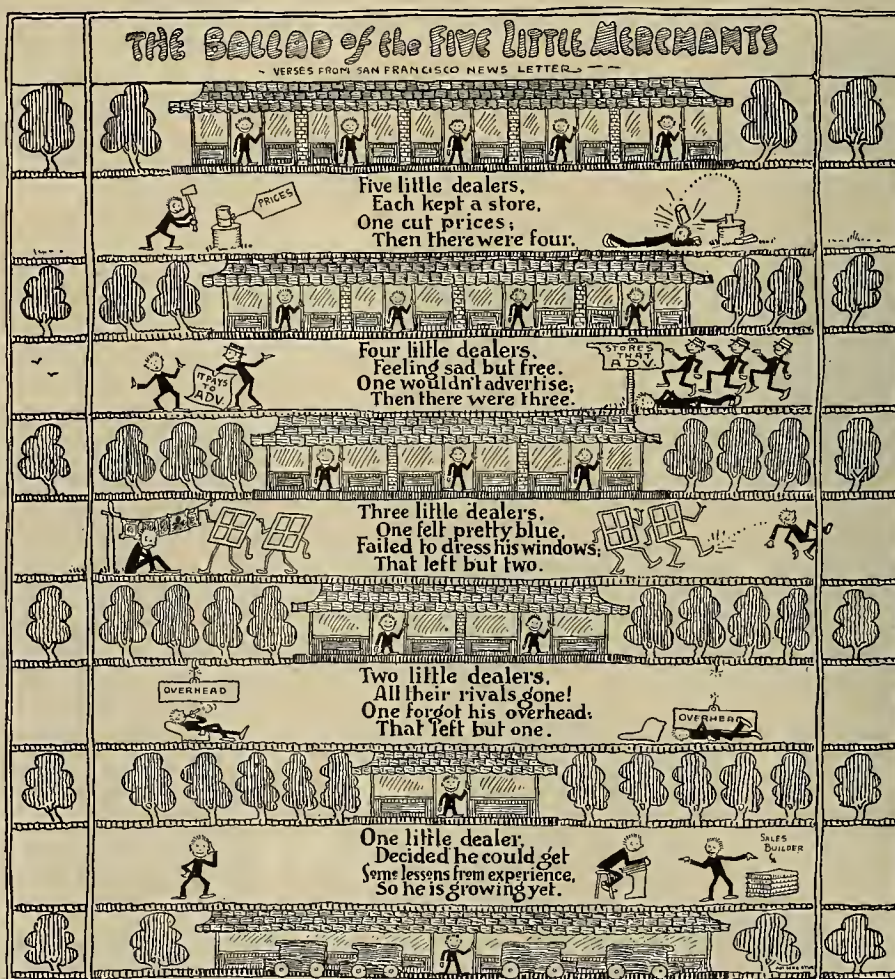 THE BALLAD of the FIVE LITTLE MERCHANTS
- VERSES FROM SAN FRANCISCO NEWS LETTER -
PRICES
Five little dealers,
Each kept a store,
One cut prices;
Then there were four.
Four little dealers,
Feeling sad but free.
One wouldn't advertise;
Then there were three.
IT PAYS
TO
ADV.
STORES
THAT
ADV.
Three little dealers,
One felt pretty blue,
Failed to dress his windows;
That left but two.
Two little dealers,
All their rivals gone!
One forgot his overhead;
That left but one.
OVERHEAD
OVERHEAD
One little dealer,
Decided he could get
Some lessons from experience,
So he is growing yet.
SALES
BUILDER